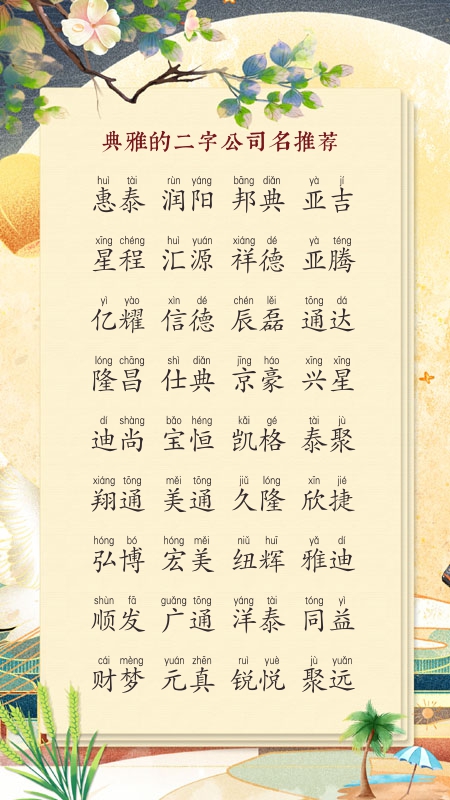 典雅的二字公司名推荐
huì tài rùn yáng bāng diǎn yà jí
惠泰 润阳 邦典 亚吉
xīng chéng huì yuán xiáng dé yà téng
星程 汇源 祥德 亚腾
yì yào xìn dé chén lěi tōng dá
亿耀 信德 辰磊 通达
lóng chāng shì diǎn jīng háo xīng xīng
隆昌 仕典 京豪 兴星
dí shàng bǎo héng kǎi gé tài jù
迪尚 宝恒 凯格 泰聚
xiáng tōng měi tōng jiǔ lóng xīn jié
翔通 美通 久隆 欣捷
hóng bó hóng měi niǔ huī yǎ dí
弘博 宏美 纽辉 雅迪
shùn fā guǎng tōng yáng tài tóng yì
顺发 广通 洋泰 同益
cái mèng yuán zhēn ruì yuè jù yuǎn
财梦 元真 锐悦 聚远